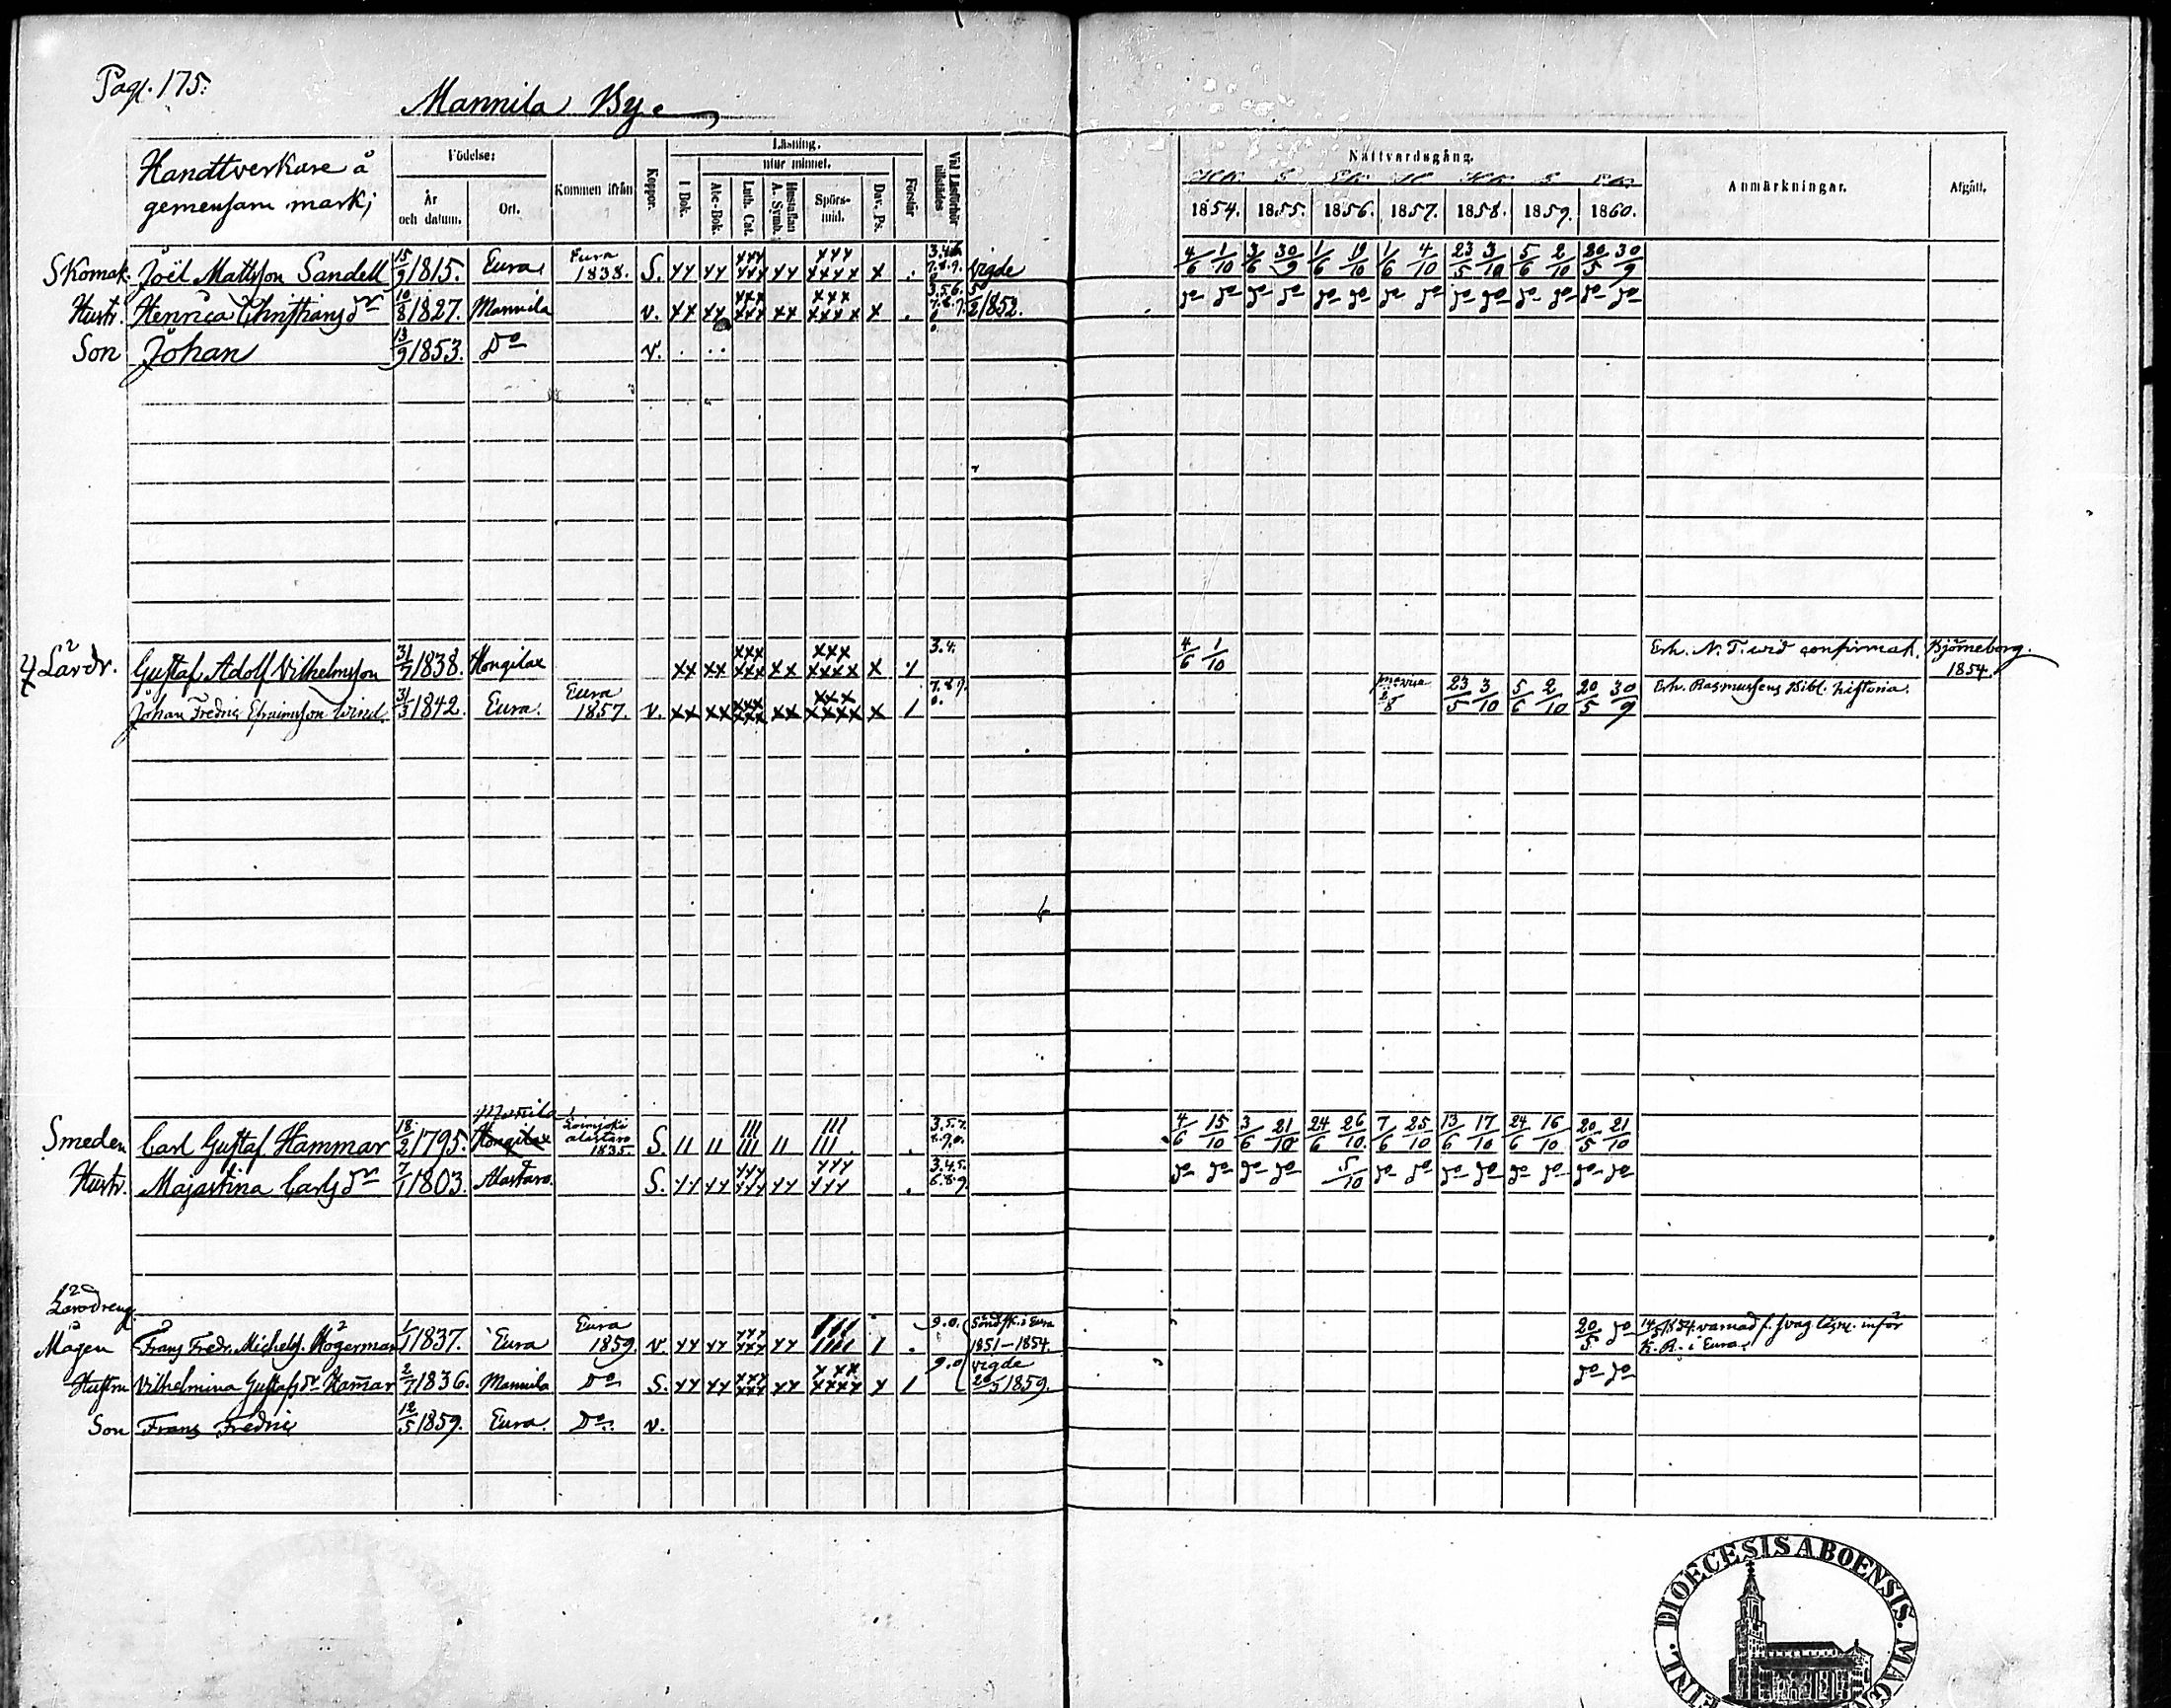 Pag. 175.
Mannila By.
Handtverkare å
gemensam mark;
Födelse:
År
och datum.
Ort.
Kommen ifrån
Koppor.
Läsning.
utur minnet.
I Bok.
Abc-Bok.
Luth. Cat.
Hustaflan
A. Symb.
Spörs-
mål.
Dav. Ps.
Förstår
Vid Läsförhör
tillstädes
Nattvardsgång.
1854. 1855. 1856. 1857. 1858. 1859. 1860.
Anmärkningar.
Afgått.
Skomak. Joël Mattsson Sandell 15/9 1815. Eura Eura 1838. S. xx xx xxx xxx xx xxx xxxx x . vigde 4/6 1/10 3/6 30/9 1/6 1/6 4/10 23/5 3/10 5/6 2/10 20/5 30/9
Hustr. Henrica Christiansdr 10/8 1827. Mannila v. xx xx xxx xxx xx xxx xxxx x . 5/2 1852. do do do do do do do do do do do do do do
Son Johan 13/9 1853. Do v. . ..
Lärdr. Gustaf Adolf Vilhelmsson 31/7 1838. Hongilax xx xx xxx xxx xx xxx xxxx x 3.4. 4/6 1/10 Erh. N. T. wid confirmat. Björneborg.
1854.
Johan Fredric Efraimsson Lind 31/3 1842. Eura. Eura 1857. v. xx xx xxx xxx xx xxx xxxx x / 7.8.9.0. 23/5 3/10 5/6 2/10 20/5 30/9 Erh. Rasmussens Bibl. historia.
Smeden Carl Gustaf Hammar 18/2 1795. Mannila Hongilax Loimijoki alastaro 1835. S. 11 11 111 111 11 111 111 . 3.5.7. 8.9.0. 4/6 15/10 3/6 21/10 24/6 26/10 7/6 25/10 13/6 17/10 24/6 16/10 20/5 21/10
Hustr. Majastina Carlsdr 7/1 1803. Alastaro. S. xx xx xxx xxx xx xxx xxx . 3.4.5. 6.8.9. do do do do 5/10 do do do do do do do do
Lärodreng
Mågen Frans Fredr. Michelss. Högerman 1/1 1837. Eura Eura 1859. v. xx xx xxx xxx xx 1111 1111 1 . 9.0. 1851-1854. 20/5 do 1854 varnad f. svag läsn. inför
K. R. i Eura.
Hustru Vilhelmina Gustafsdr Hamar 2/7 1836. Mannila Do S. xx xx xxx xxx xx xxx xxxx x / 9.0 vigde 1859. do do
Son Frans Fredric 12/5 1859. Eura. Do. v.
DIOECESIS ABOENSIS. MAG